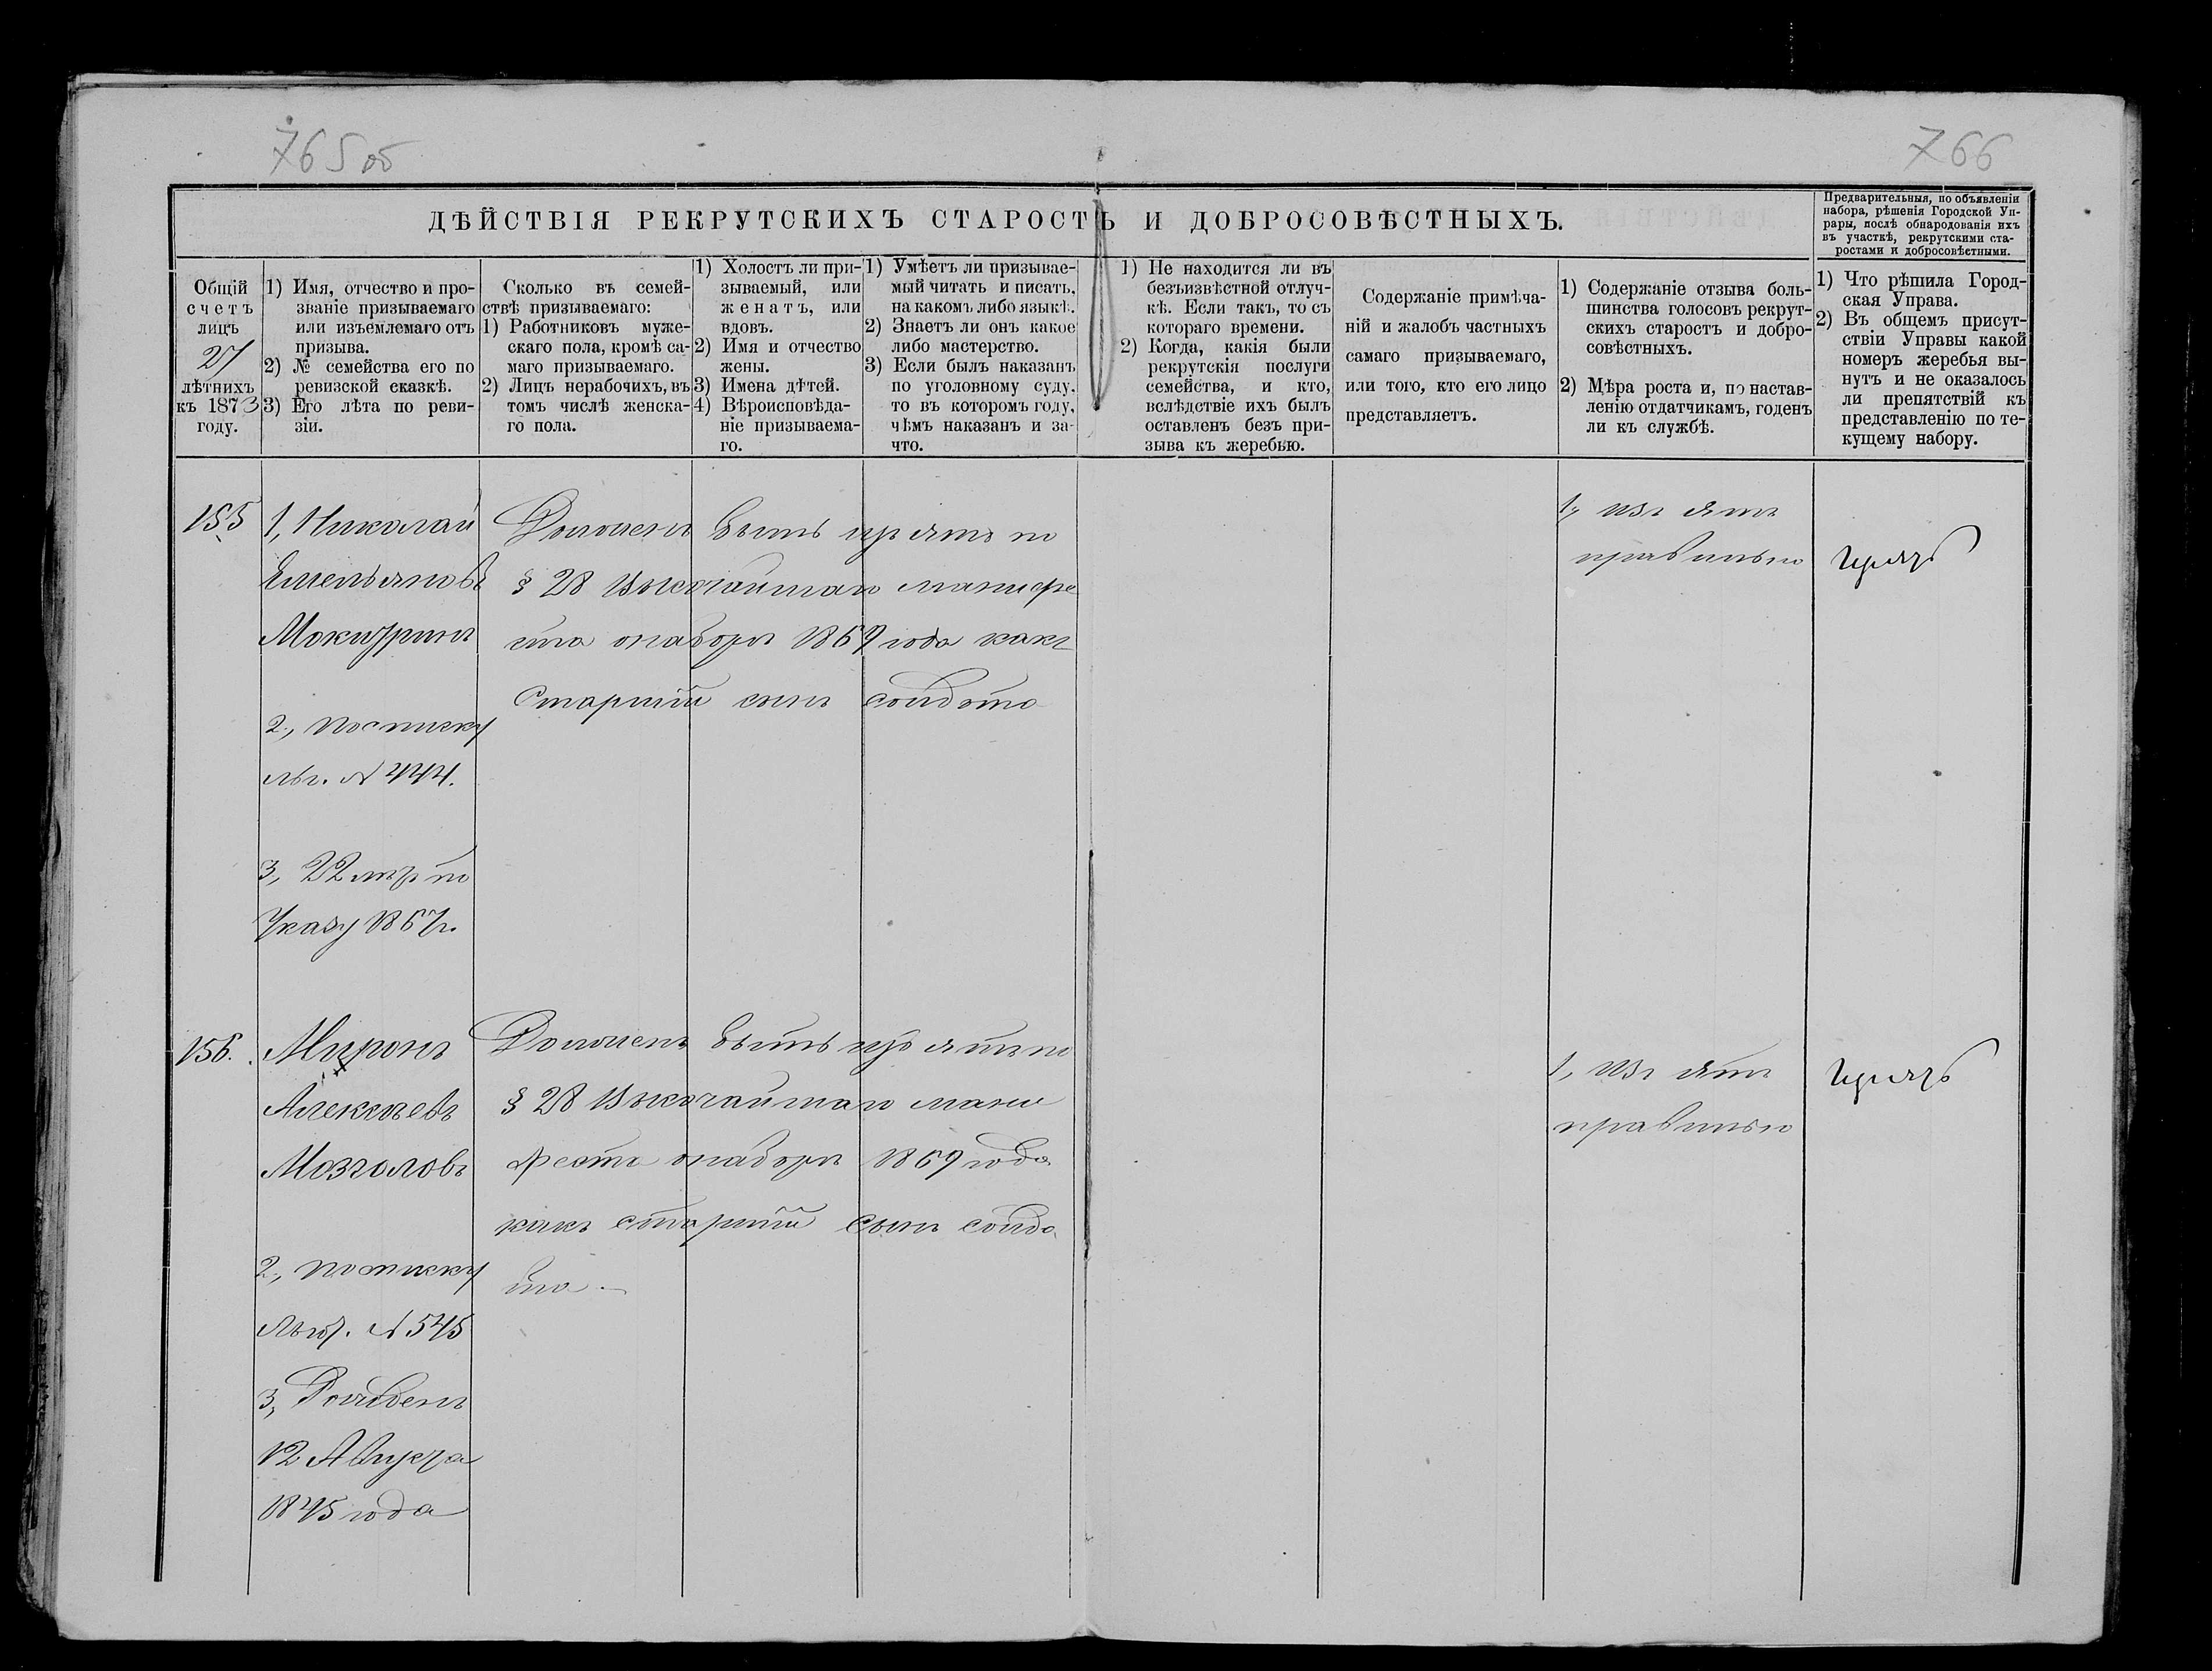 765 об
766
ДѢЙСТВІЯ РЕКРУТСКИХЪ СТАРОСТЪ И ДОБРОСОВѢСТНЫХЪ.
Предварительныя, по объявленіи
набора, рѣшенія Городской Уп-
равы, послѣ обнародованія ихъ
въ участкѣ, рекрутскими ста-
ростами и добросовѣстными.
Общій
счетъ
лицъ
27
лѣтнихъ
къ 1873
году.
1) Имя, отчество и про-
званіе призываемаго
или изъемлемаго отъ
призыва.
2) № семейства его по
ревизской сказкѣ.
3) Его лѣта по реви-
зіи.
Сколько въ семей-
ствѣ призываемаго:
1) Работниковъ муже-
скаго пола, кромѣ са-
маго призываемаго.
2) Лицъ нерабочихъ, въ
томъ числѣ женска-
го пола.
1) Холостъ ли при-
зываемый, или
женатъ, или
вдовъ.
2) Имя и отчество
жены.
3) Имена дѣтей.
4) Вѣроисповѣда-
ніе призываема-
го.
1) Умѣетъ ли призывае-
мый читать и писать,
на какомъ либо языкѣ.
2) Знаетъ ли онъ какое
либо мастерство.
3) Если былъ наказанъ
по уголовному суду,
то въ которомъ году,
чѣмъ наказанъ и за-
что.
1) Не находится ли въ
безъизвѣстной отлуч-
кѣ. Если такъ, то съ
котораго времени.
2) Когда, какія были
рекрутскія послуги
семейства, и кто,
вслѣдствіе ихъ былъ
оставленъ безъ при-
зыва къ жеребью.
Содержаніе примѣча-
ній и жалобъ частныхъ
самаго призываемаго,
или того, кто его лицо
представляетъ.
1) Содержаніе отзыва боль-
шинства голосовъ рекрут-
скихъ старостъ и добро-
совѣстныхъ.
2) Мѣра роста и, по настав-
ленію отдатчикамъ, годенъ
ли къ службѣ.
1) Что рѣшила Город-
ская Управа.
2) Въ общемъ присут-
ствіи Управы какой
номеръ жеребья вы-
нутъ и не оказалось
ли препятствій къ
представленію по те-
кущему набору.
155
1, Николай
Емельяновъ
Мокшринъ
2., по списку
льг. № 444.
3, 22 лѣтъ по
Указу 1867 г.
Долженъ быть изъятъ по
§ 28 Высочайшаго манифе
ста о наборѣ 1869 года какъ
Старшій сынъ солдата
1, изъятъ
правильно
156.
Миронъ
Алексѣевъ
Мозголовъ
2., по списку
льгот. № 545
3, Рожденъ
12 Августа
1845 года
Долженъ быть изъятъ по
§ 28 Высочайшаго мани
феста о наборѣ 1869 года
какъ старшій сынъ солда
та.
1, изъятъ
правильно